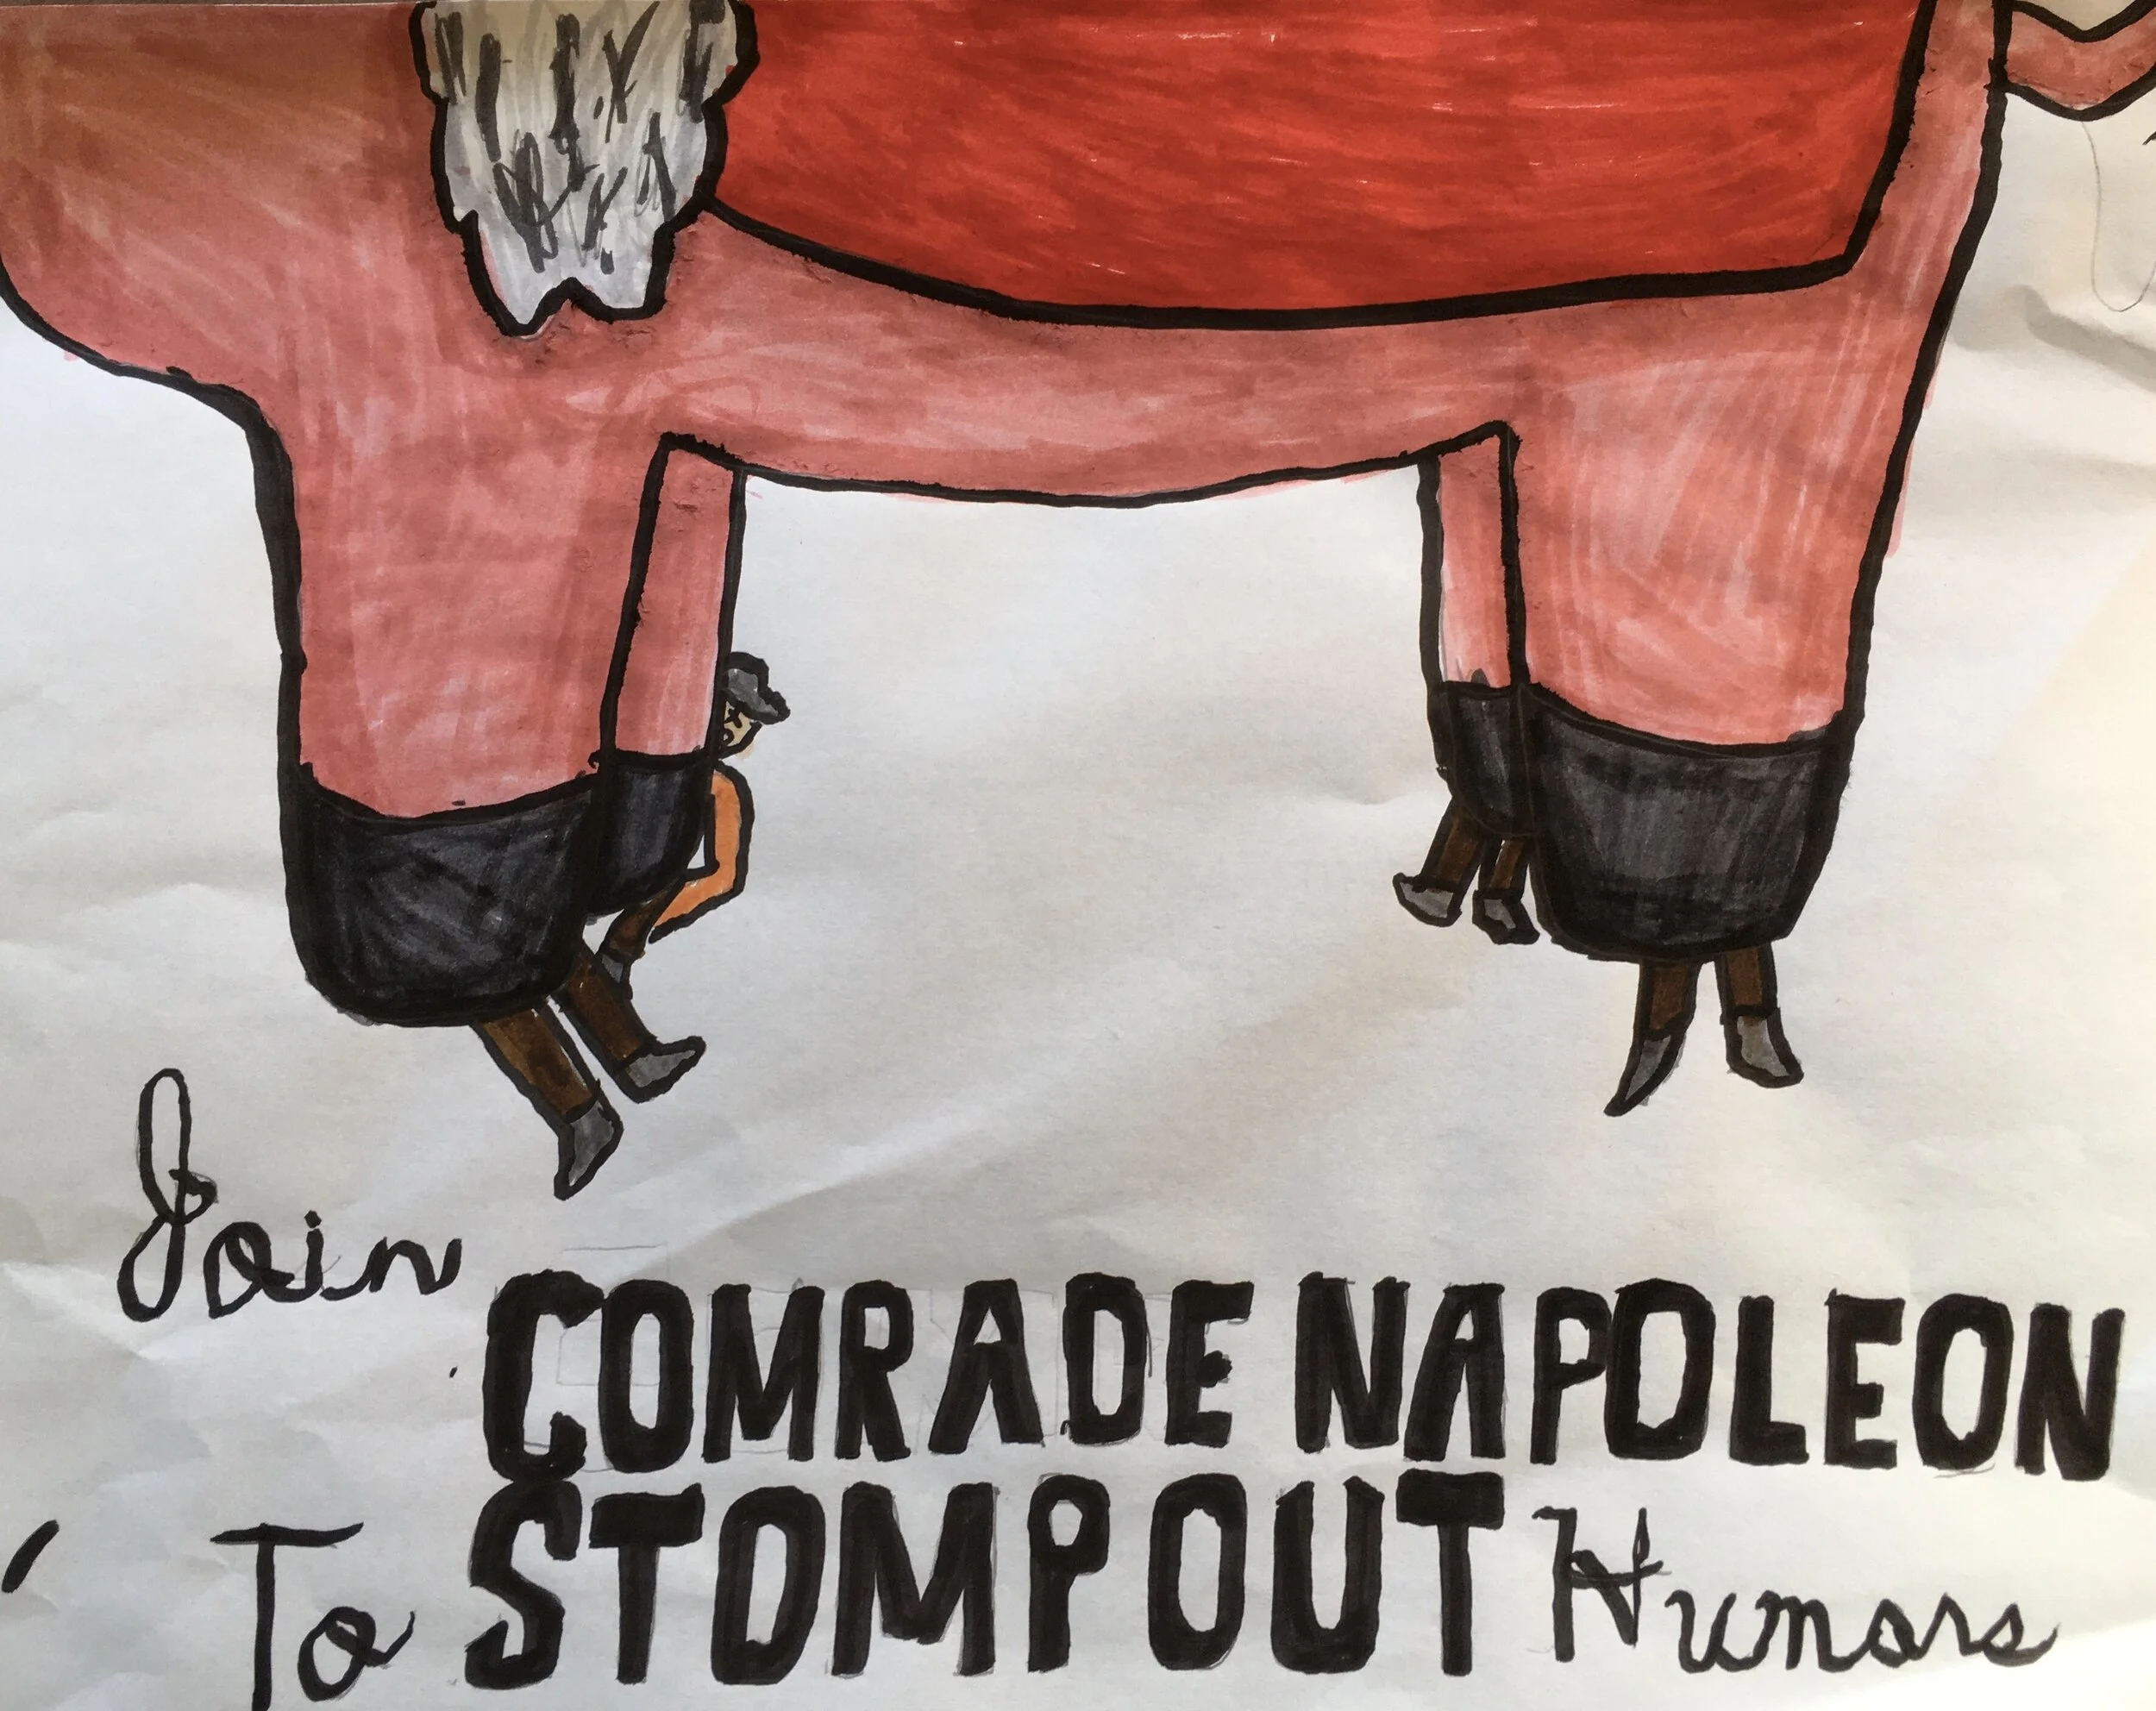 Join
COMRADE NAPOLEON
To STOMP OUT Humans